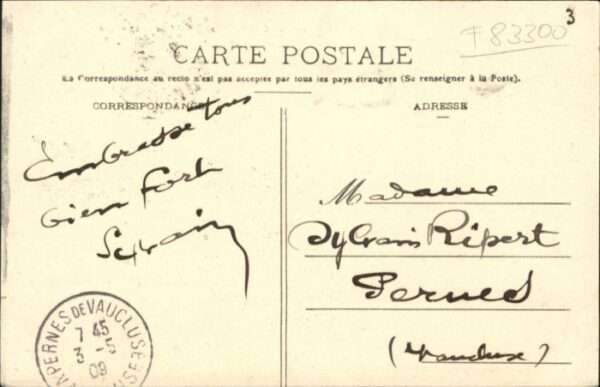 3
F83300
CARTE POSTALE
La Correspondance au recto n'est pas acceptée par tous les pays étrangers (Se renseigner à la Poste).
CORRESPONDANCE
ADRESSE
Embrasse tous
bien fort
Sylvain
Madame
Sylvain Ripert
Pernes
(Vaucluse)
PERNES DE VAUCLUSE
7 45
3 - 5
09